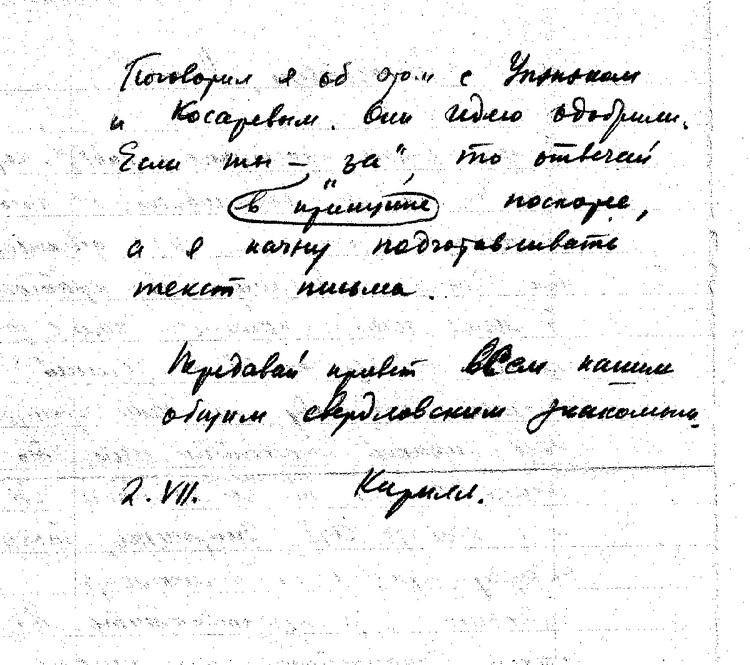 Поговорил я об этом с
и Косаревым. Они идею одобрили.
Если ты — „за", то отвечай
в принципе поскорее,
а я начну подготавливать
текст письма.
Передавай привет всем нашим
общим свердловским знакомым.
2.VII. Кирилл.